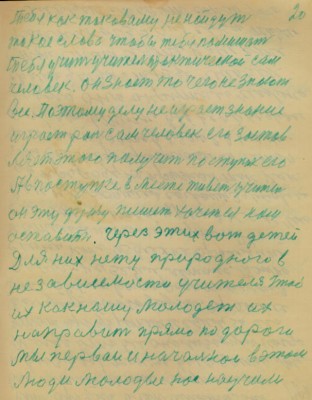 20
Тебя как таковому не найдут
такие слова чтобы тебя помешат
Тебя учит учитель практической сам
человек. он знает то чего не знают
все. Поэтому делу не играет знание
играет рол сам человек его застав
этого получит поступк его
А в поступке в месте живет учитель
он эту фразу пишет хочет им
оставить. через этих вот детей
Для них нету природного в
независемости учителя чтоб
их как нашу молодеж их
направит прямо по дороги
мы первая и начальная в этом
люди молодые нас научили